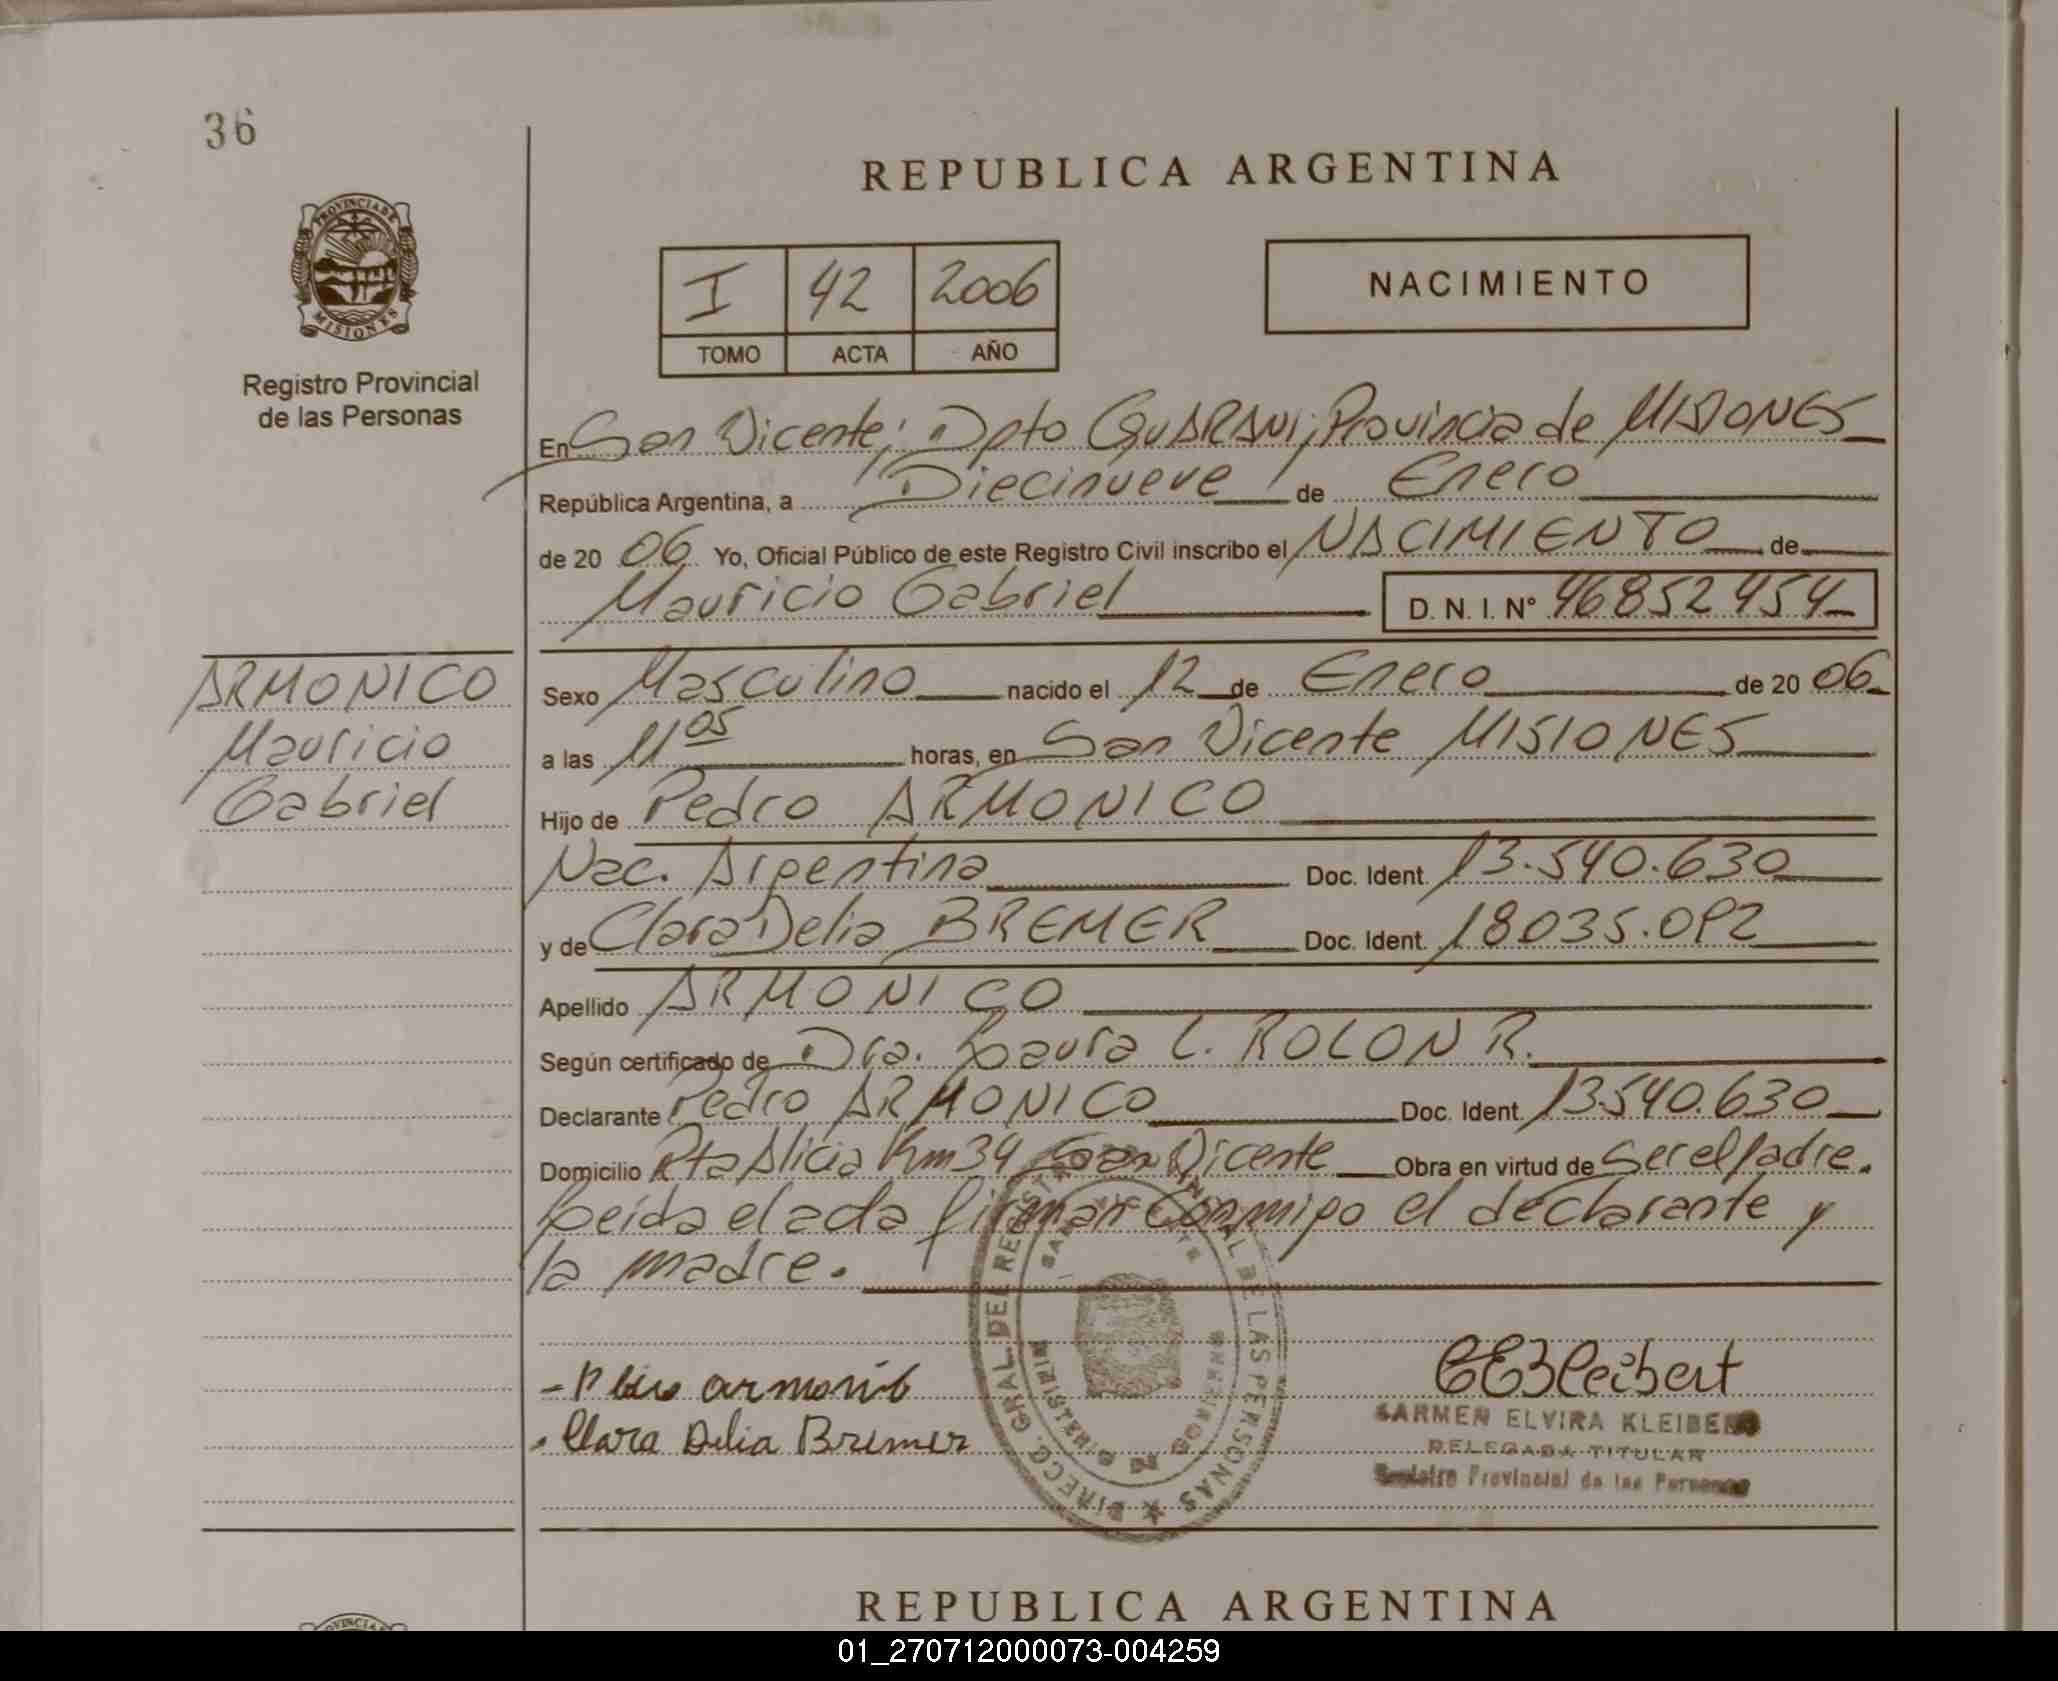 36
REPUBLICA ARGENTINA
PROVINCIA DE
MISIONES
Registro Provincial
de las Personas
I 42 2006
TOMO ACTA AÑO
NACIMIENTO
En San Vicente; Dpto GUARANI; Provincia de MISIONES
República Argentina, a Diecinueve de Enero
de 20 06 Yo, Oficial Público de este Registro Civil inscribo el NACIMIENTO de
Mauricio Gabriel D. N. I. Nº 46852454
ARMONICO
Mauricio
Gabriel
Sexo Masculino nacido el 12 de Enero de 20 06
a las 11 05 horas, en San Vicente MISIONES
Hijo de Pedro ARMONICO
Nac. Argentina Doc. Ident. 13.540.630
y de Clara Delia BREMER Doc. Ident. 18035.092
Apellido ARMONICO
Según certificado de Dra. Laura L. ROLON R.
Declarante Pedro ARMONICO Doc. Ident. 13540.630
Domicilio Pta Alicia Km 34 San Vicente Obra en virtud de Ser el Padre.
Leída el acta firman Conmigo el declarante y
la madre.
DIRECC. GRAL. DEL REGISTRO PROVINCIAL DE LAS PERSONAS
SAN VICENTE
MINISTERIO DE GOBIERNO
- armonico
. Clara Delia Bremer
CEKleibert
CARMEN ELVIRA KLEIBERT
DELEGADA TITULAR
Registro Provincial de las Personas
REPUBLICA ARGENTINA
01_270712000073-004259